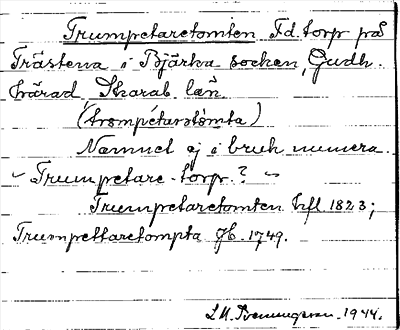 Trumpetaretomten F.d. torp på
Trästena i Bjärka socken, Gudh.
härad Skarab. län
(trompétarətòmta)
Namnet ej i bruk numera.
~ Trumpetare-torp? ~
Trumpetaretomten hfl. 1823;
Trumpettaretompta Jb. 1749.
L.M. 1944.